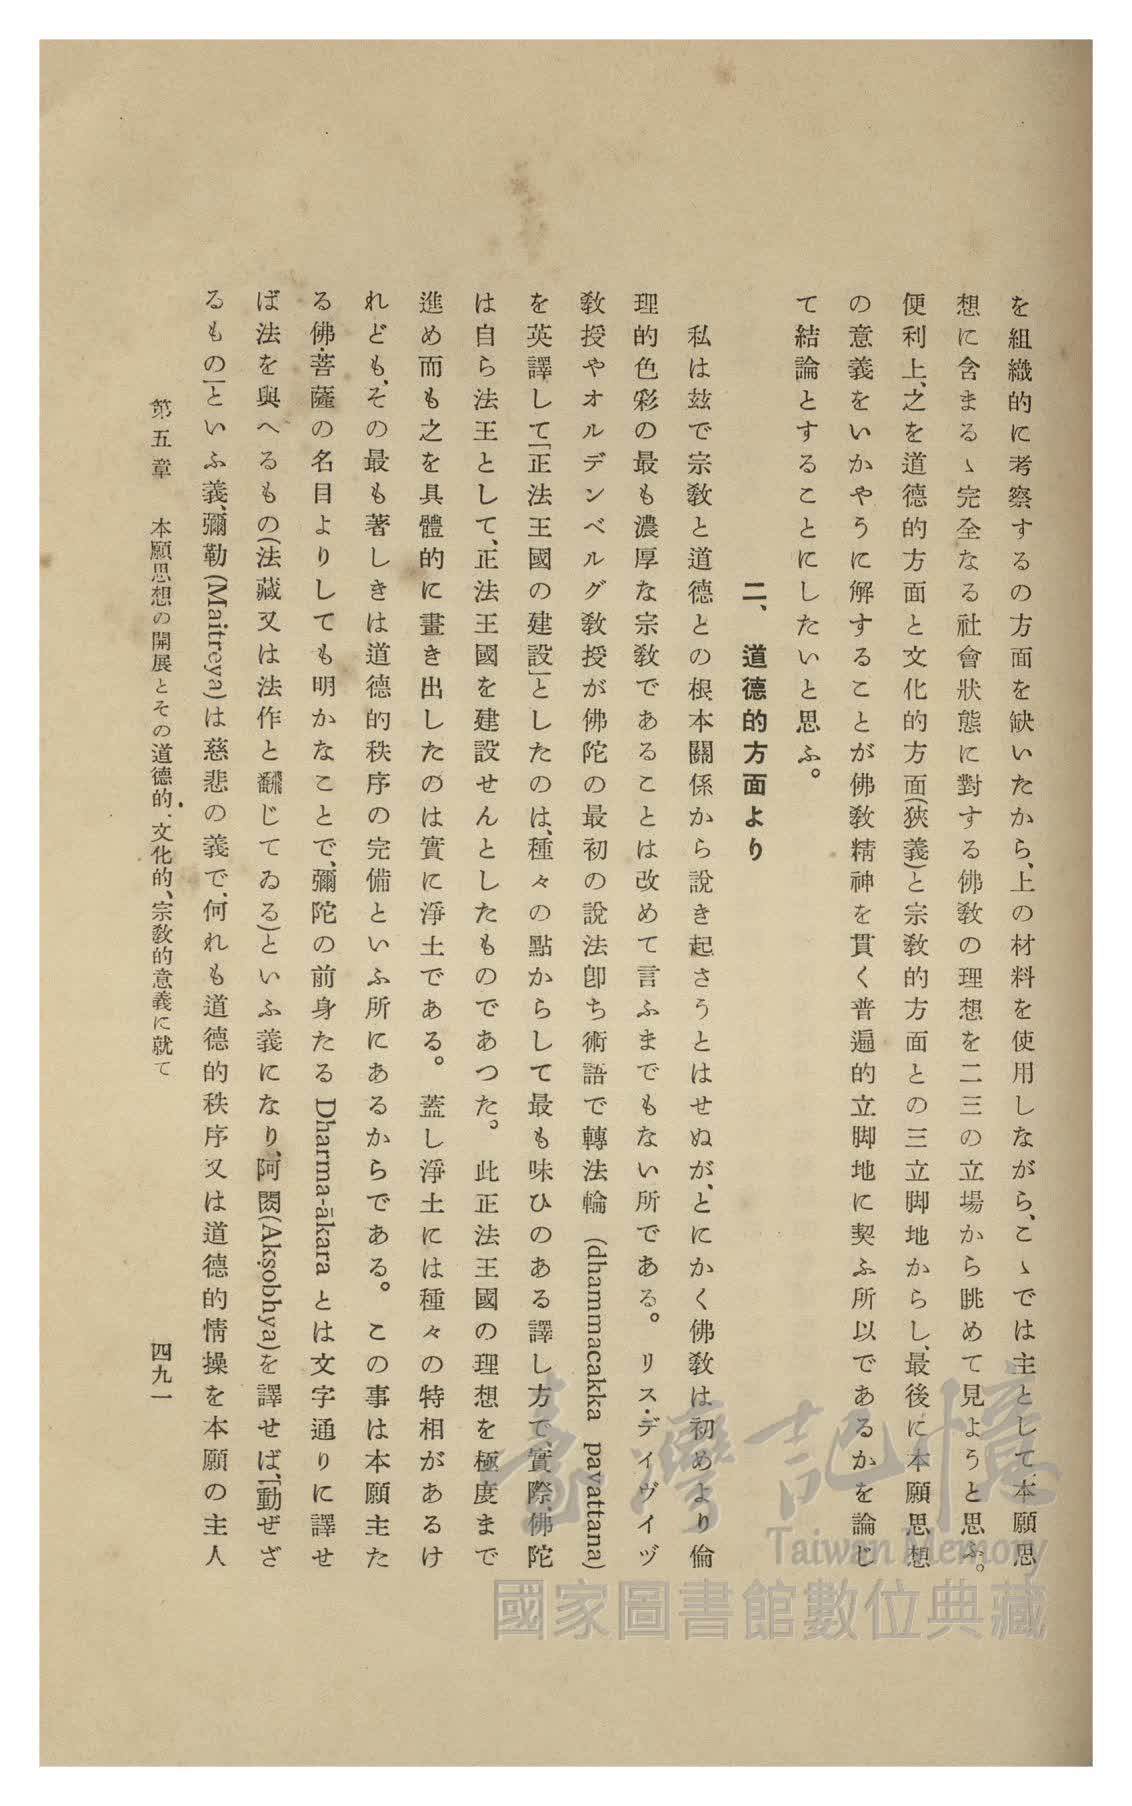 を組織的に考察するの方面を缺いたから、上の材料を使用しながら、こゝでは主として本願思
想に含まるゝ完全なる社會狀態に對する佛敎の理想を二三の立場から眺めて見ようと思ふ。
便利上、之を道德的方面と文化的方面(狹義)と宗敎的方面との三立脚地からし、最後に本願思想
の意義をいかやうに解することが佛敎精神を貫く普遍的立脚地に契ふ所以であるかを論じ
て結論とすることにしたいと思ふ。
二、道德的方面より
私は玆で宗敎と道德との根本關係から說き起さうとはせぬが、とにかく佛敎は初めより倫
理的色彩の最も濃厚な宗敎であることは改めて言ふまでもない所である。リス・デイヴイヅ
敎授やオルデンベルグ敎授が佛陀の最初の說法卽ち術語で轉法輪 (dhammacakka pavattana)
を英譯して「正法王國の建設」としたのは、種々の點からして最も味ひのある譯し方で、實際、佛陀
は自ら法王として、正法王國を建設せんとしたものであつた。此正法王國の理想を極度まで
進め而も之を具體的に畫き出したのは實に淨土である。蓋し淨土には種々の特相があるけ
れども、その最も著しきは道德的秩序の完備といふ所にあるからである。この事は本願主た
る佛・菩薩の名目よりしても明かなことで、彌陀の前身たる Dharma-ākara とは文字通りに譯せ
ば法を與へるもの(法藏又は法作と飜じてゐる)といふ義になり、阿閦(Akṣobhya)を譯せば、「動ぜざ
るもの」といふ義、彌勒(Maitreya)は慈悲の義で、何れも道德的秩序又は道德的情操を本願の主人
第五章 本願思想の開展とその道德的、文化的、宗敎的意義に就て
四九一
臺灣記憶
Taiwan Memory
國家圖書館數位典藏